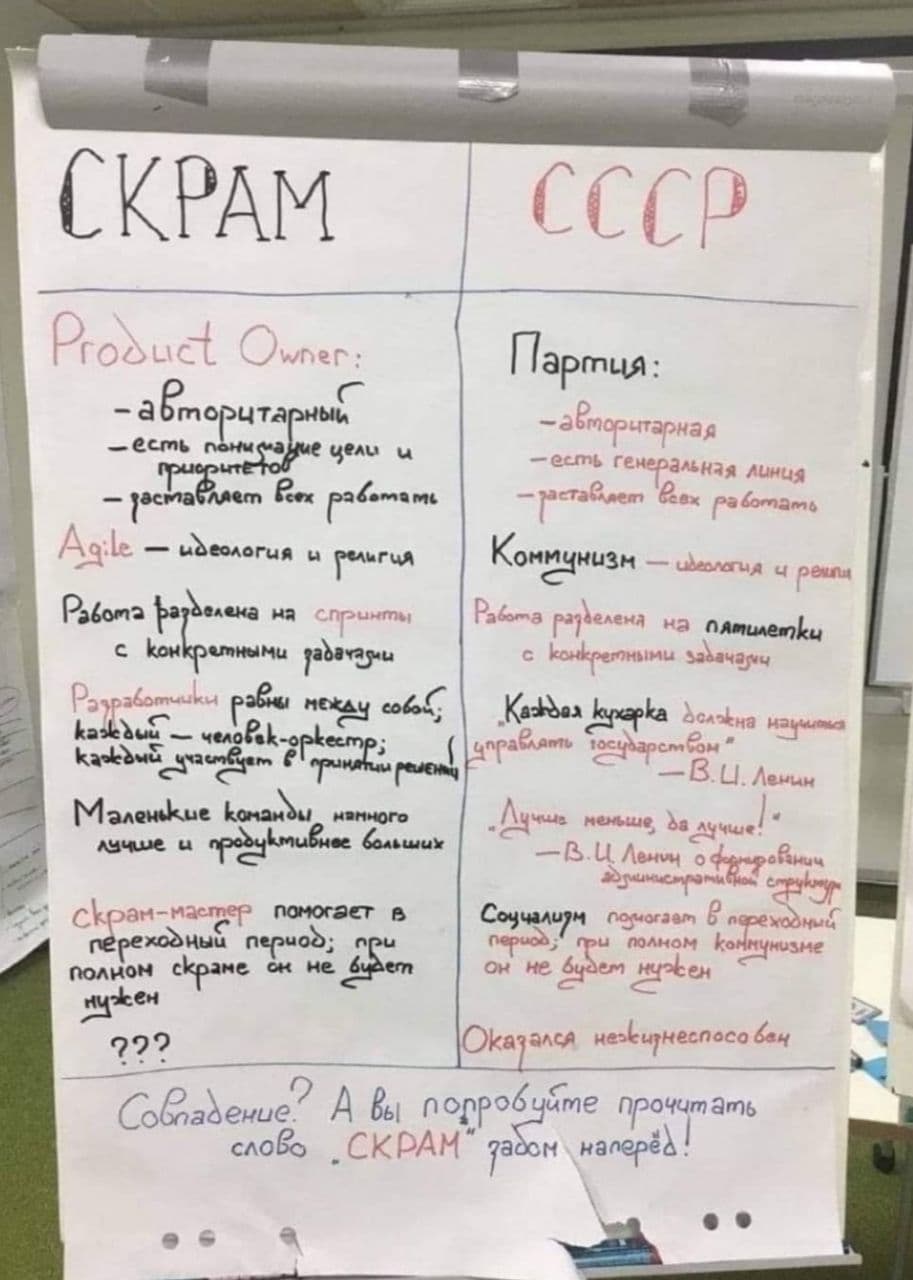 СКРАМ
Product Owner:
- авторитарный
- есть понимание цели и
приоритетов
- заставляет всех работать
Agile — идеология и религия
Работа разделена на спринты
с конкретными задачами
Разработчики равны между собой;
каждый — человек-оркестр;
каждый участвует в принятии решений
Маленькие команды намного
лучше и продуктивнее больших
скрам-мастер помогает в
переходный период; при
полном скраме он не будет
нужен
???
СССР
Партия:
- авторитарная
- есть генеральная линия
- заставляет всех работать
Коммунизм — идеология и
Работа разделена на пятилетки
с конкретными задачами
„Каждая кухарка должна научиться
управлять государством“
— В.И. Ленин
„Лучше меньше, да лучше!“
— В.И. Ленин о формировании
административной структуры
Социализм помогает в переходный
период; при полном коммунизме
он не будет нужен
Оказался нежизнеспособен
Совпадение? А вы попробуйте прочитать
слово „СКРАМ“ задом наперёд!